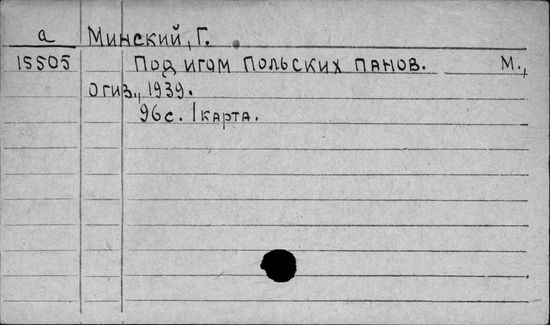 а Минский, Г.
15505 Под игом польских панов. М.,
Огиз., 1939.
96с. 1 карта.